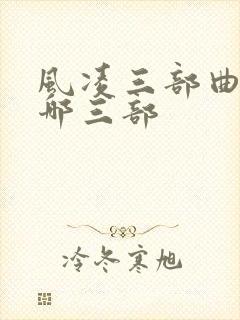 風凌三部曲
哪三部
冷冬寒旭